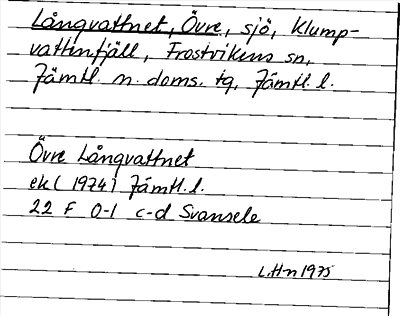 Långvattnet, Övre, sjö, Klump-
vattenfjäll, Frostvikens sn,
Jämtl. n. doms. tg, Jämtl. l.
Övre Långvattnet
ek (1974) Jämtl. l.
22 F 0-1 c-d Svansele
L.Hn 1975